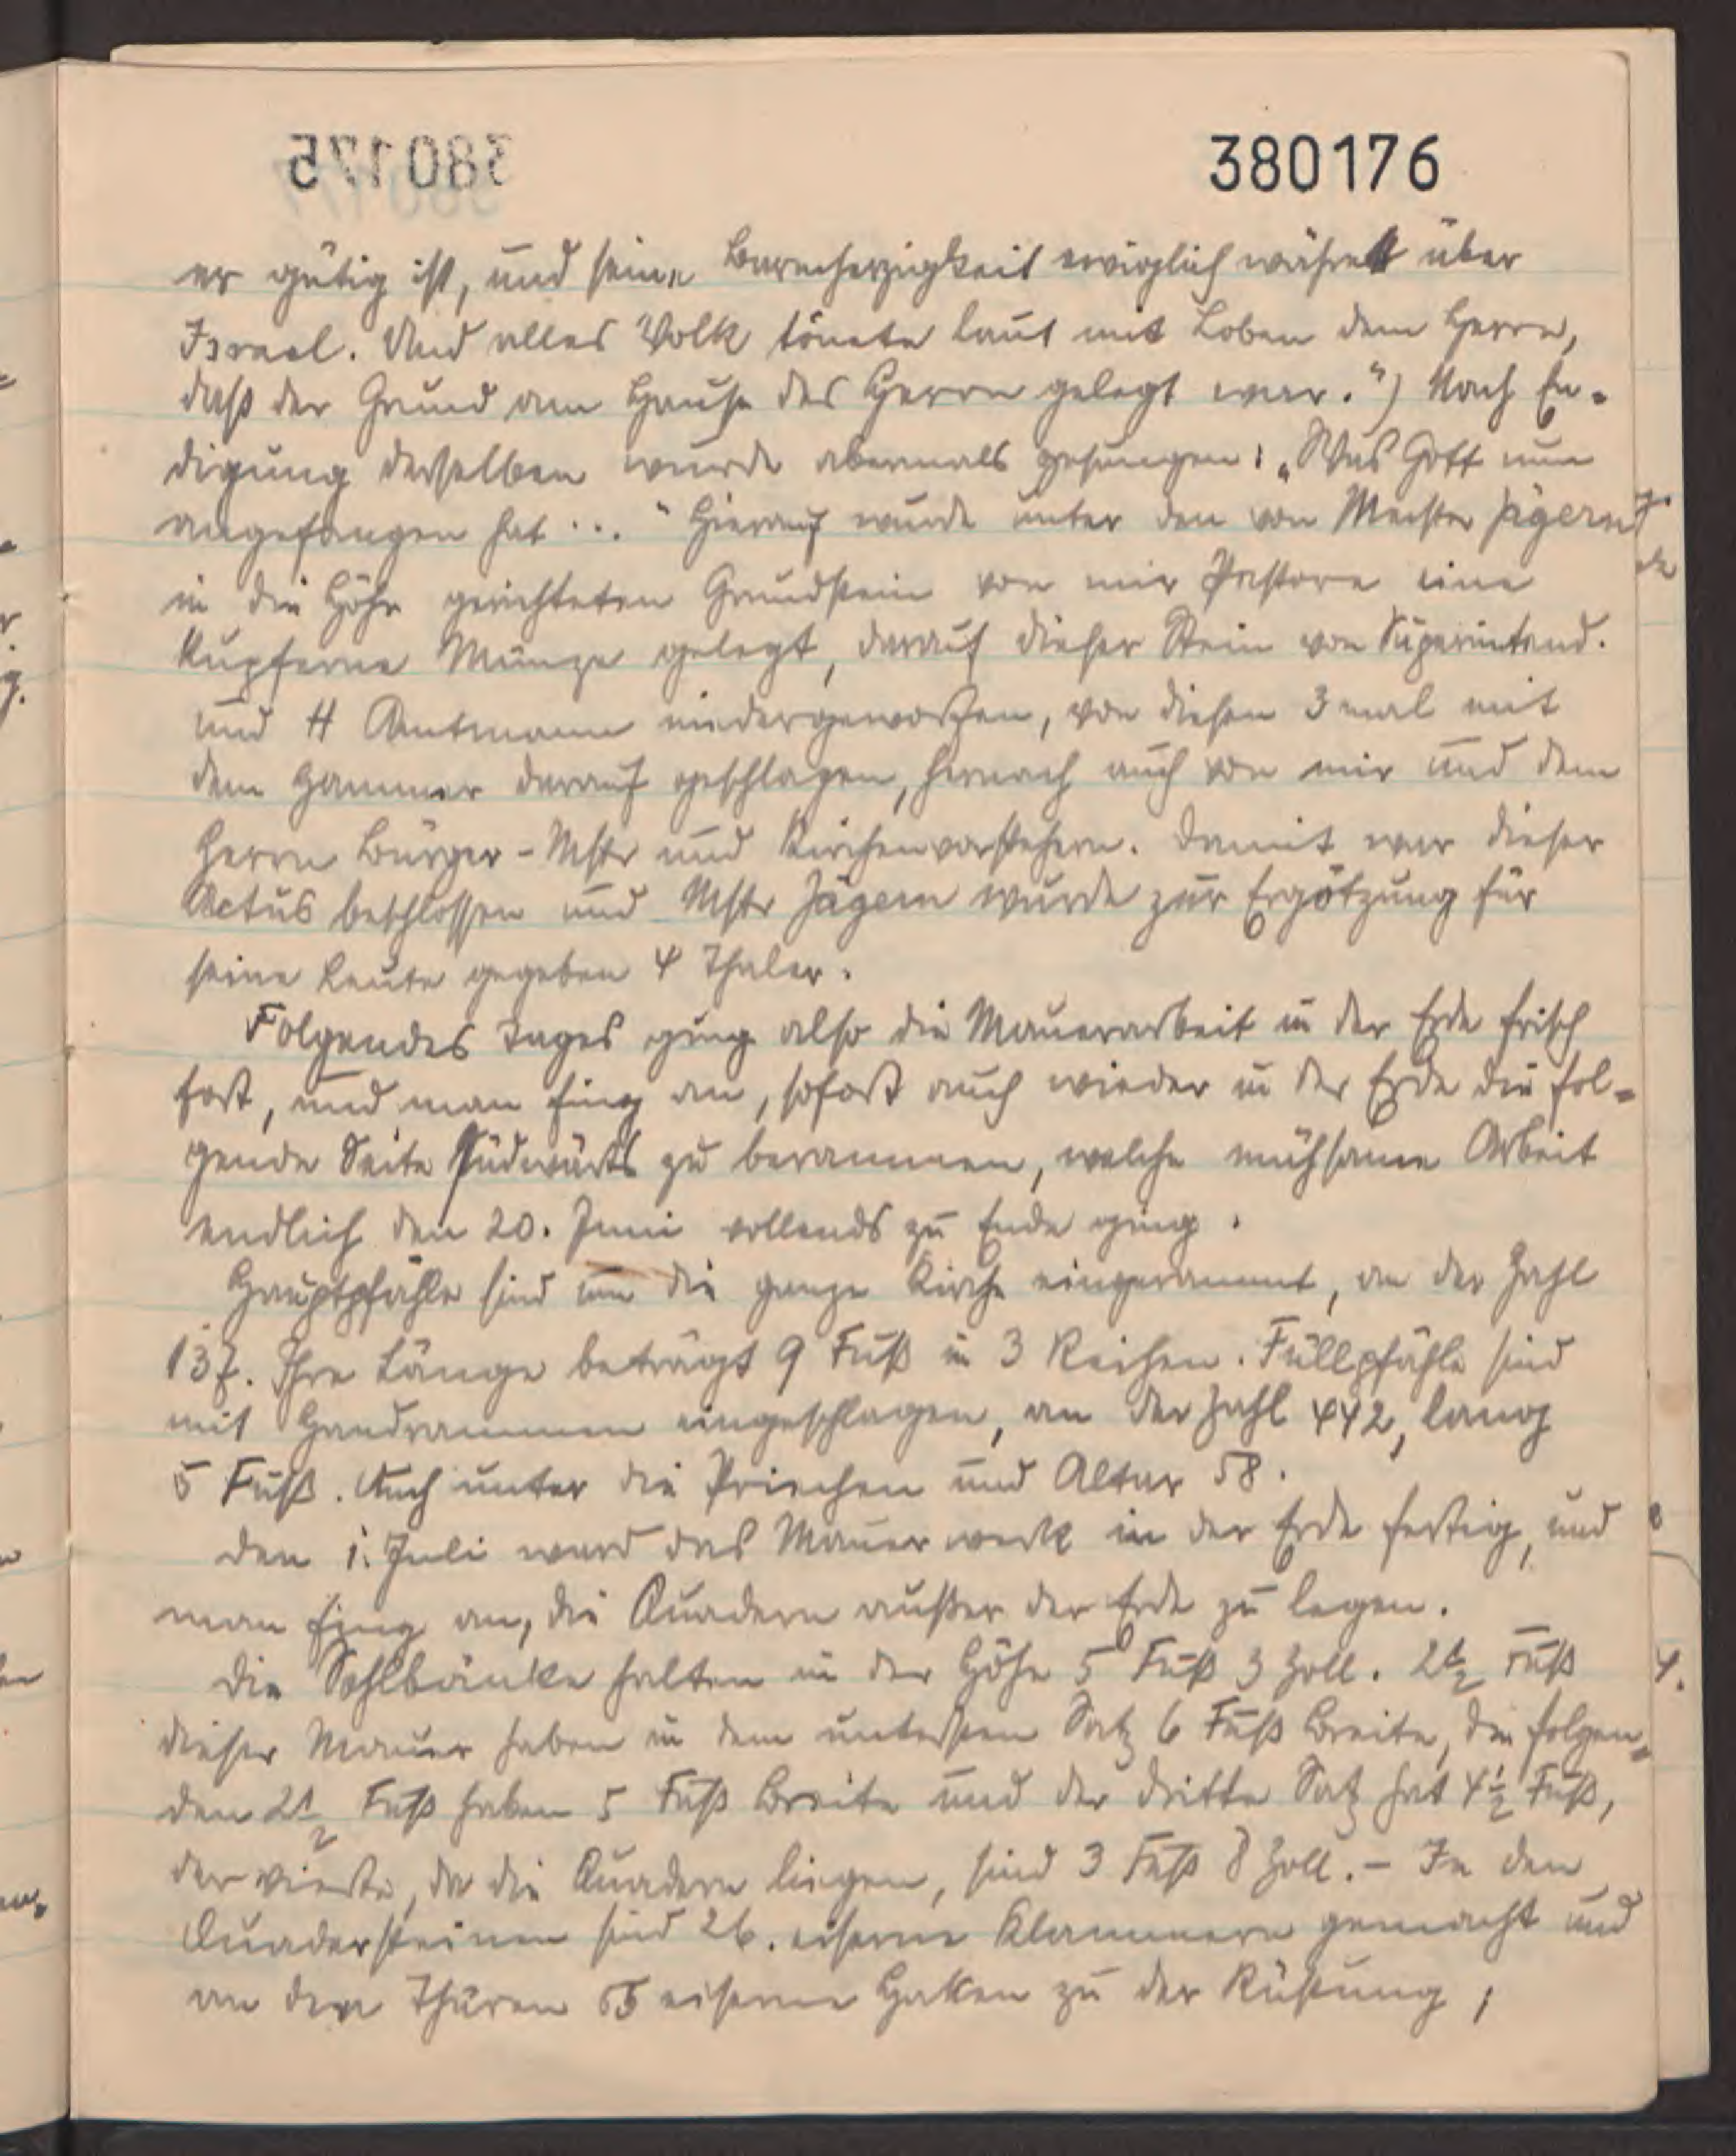 380175
380176
er gütig ist, und seine Barmherzigkeit ewiglich währet über
Israel. Und alles Volk tönete laut mit Loben dem Herrn,
daß der Grund am Hause des Herrn gelegt war.") Nach En-
digung desselben wurde abermals gesungen: „Was Gott nun
angefangen hat ..." Hierauf wurde unter den von Meister Jägern
in die Höhe gerichteten Grundstein von mir Pastore eine
kupferne Münze gelegt, darauf dieser Stein von Superintend.
und H Amtmann niedergeworfen, von diesen 3 mal mit
dem Hammer darauf geschlagen, hernach auch von mir und dem
Herrn Bürger-Mstr und Kirchenvorstehern. Damit war dieser
Actus beschlossen und Mstr Jägern wurde zur Ergötzung für
seine Leute gegeben 4 Thaler.
Folgendes Tages ging also die Mauerarbeit in der Erde frisch
fort, und man fing an, sofort auch wieder in der Erde die fol-
gende Seite südwärts zu berammen, welche mühsame Arbeit
endlich den 20. Juni vollends zu Ende ging.
Hauptpfähle sind um die ganze Kirche eingerammt, an der Zahl
137. Ihre Länge beträgt 9 Fuß in 3 Reihen. Füllpfähle sind
mit Handrammen eingeschlagen, an der Zahl 442, lang
5 Fuß. Auch unter die Priechen und Altar 58.
Den 1. Juli ward das Mauerwerk in der Erde fertig, und
man fing an, die Quadern außer der Erde zu legen.
Die Sohlbänke halten in der Höhe 5 Fuß 3 Zoll. 2½ Fuß
dieser Mauer haben in dem untersten Satz 6 Fuß Breite, die folgen-
den 2½ Fuß haben 5 Fuß Breite und der dritte Satz hat 4½ Fuß,
der vierte, da die Quadern liegen, sind 3 Fuß 8 Zoll. - In den
Quadersteinen sind 26. eiserne Klammern gemacht und
an den Thüren eiserne Haken zu der Rüstung;